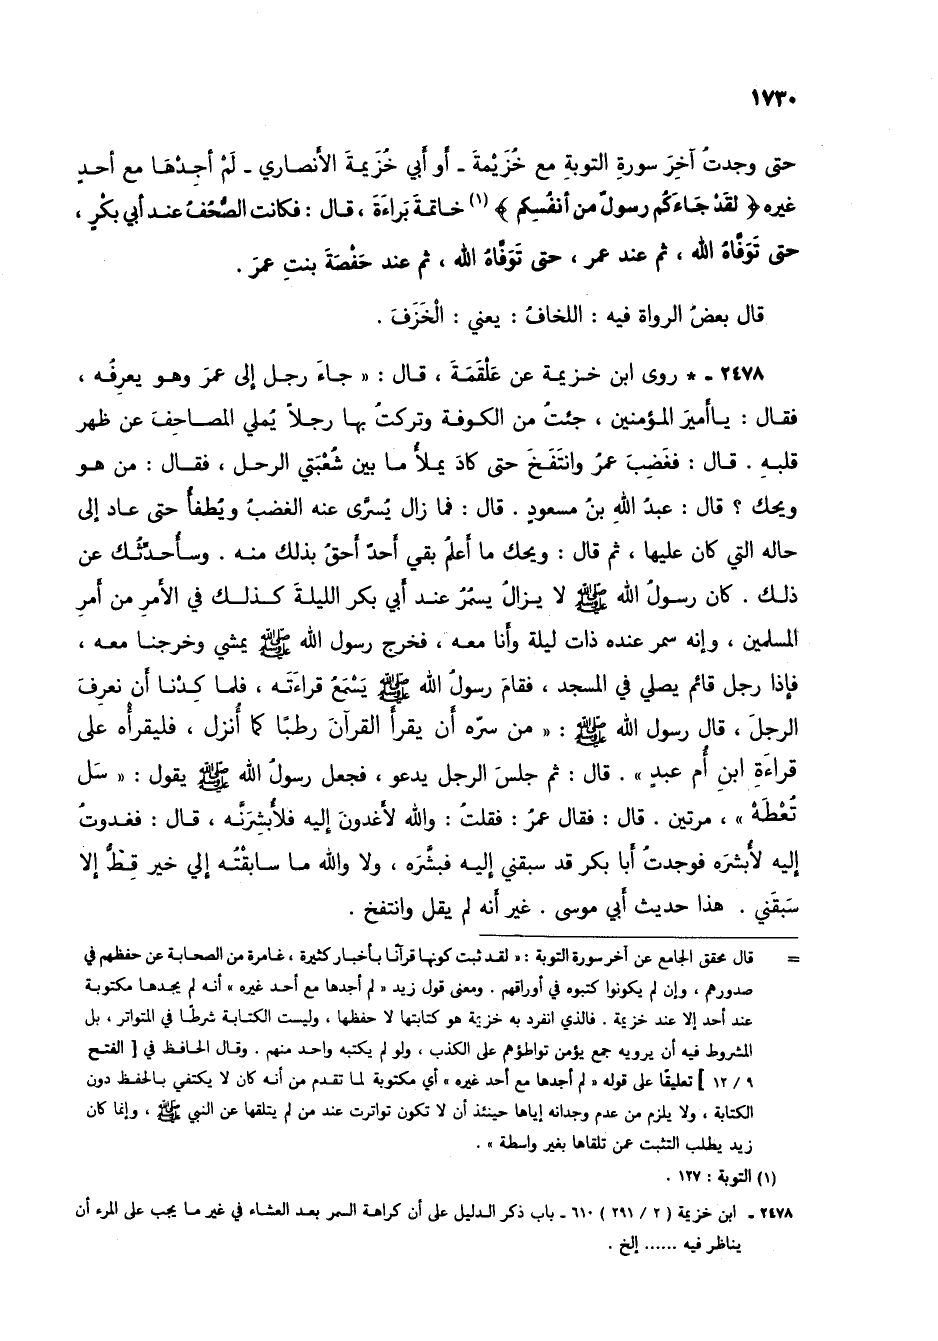 ١٧٣٠
حتى وجدتُ آخِرَ سورةِ التوبةِ مع خُزَيْمَةَ ـ أو أبي خُزَيمةَ الأنصاري ـ لَمْ أجِدْهَا مع أحدٍ
غيره ﴿ لقَدْ جاءَكُم رسولٌ من أنفُسِكم ﴾ (١) خاتمةَ بَراءَةَ ، قال : فكانت الصُّحُفُ عند أبي بكْرٍ ،
حتى تَوَفَّاهُ الله ، ثم عند عمر ، حتى تَوَفَّاهُ الله ، ثم عند حَفْصَةَ بنتِ عمرَ .
قال بعضُ الرواة فيه : اللخافُ : يعني : الْخَزَفَ .
٢٤٧٨ ـ * روى ابن خزيمة عن عَلْقمَةَ ، قال : « جاءَ رجل إلى عمرَ وهو يعرفُه ،
فقال : ياأميرَ المؤمنين ، جئتُ من الكوفة وتركتُ بها رجلاً يُملي المصاحِفَ عن ظهر
قلبهِ . قال : فغَضِبَ عمرُ وانتَفَخَ حتى كادَ يملأُ ما بين شُعْبَتي الرحل ، فقال : من هو
ويحك ؟ قال : عبدُ اللهِ بنُ مسعودٍ . قال : فما زال يُسرَّى عنه الغضبُ ويُطفأُ حتى عاد إلى
حاله التي كان عليها ، ثم قال : ويحك ما أعلمُ بقي أحدٌ أحقُ بذلك منه . وسأحدِّثُك عن
ذلك . كان رسولُ الله ﷺ لا يزالُ يسمُرُ عند أبي بكر الليلةَ كذلك في الأمرِ من أمرِ
المسلمين ، وإنه سمر عنده ذات ليلة وأنا معه ، فخرج رسول الله ﷺ يمشي وخرجنا معه ،
فإذا رجل قائم يصلي في المسجد ، فقامَ رسولُ الله ﷺ يَسْمَعُ قراءَتَه ، فلما كِدْنا أن نعرِفَ
الرجلَ ، قال رسول الله ﷺ : « من سرّه أن يقرأَ القرآنَ رطبًا كما أُنزل ، فليقرأْه على
قراءَةِ ابنِ أُم عبدٍ » . قال : ثم جلسَ الرجل يدعو ، فجعل رسولُ الله ﷺ يقول : « سَل
تُعْطَهْ » ، مرتين . قال : فقال عمرُ : فقلتُ : والله لأغدونَ إليه فلأُبشرَنَّه ، قال : فغدوتُ
إليه لأُبشرَه فوجدتُ أبا بكر قد سبقني إليه فبشَّرَه ، ولا والله ما سابقْتُه إلي خير قطُّ إلا
سَبَقَني . هذا حديث أبي موسى . غير أنه لم يقل وانتفخ .
= قال محقق الجامع عن آخر سورة التوبة : « لقد ثبت كونها قرآنا بأخبار كثيرة ، غامرة من الصحابة عن حفظهم في
صدورهم ، وإن لم يكونوا كتبوه في أوراقهم . ومعنى قول زيد « لم أجدها مع أحد غيره » أنه لم يجدها مكتوبة
عند أحد إلا عند خزيمة . فالذي انفرد به خزيمة هو كتابتها لا حفظها ، وليست الكتابة شرطًا في المتواتر ، بل
المشروط فيه أن يرويه جمع يؤمن تواطؤهم على الكذب ، ولو لم يكتبه واحد منهم . وقال الحافظ في [ الفتح
٩ / ١٢ ] تعليقًا على قوله « لم أجدها مع أحد غيره » أي مكتوبة لما تقدم من أنه كان لا يكتفي بالحفظ دون
الكتابة ، ولا يلزم من عدم وجدانه إياها حينئذ أن لا تكون تواترت عند من لم يتلقها عن النبي ﷺ ، وإنما كان
زيد يطلب التثبت عمن تلقاها بغير واسطة » .
(١) التوبة : ١٢٧ .
٢٤٧٨ ـ ابن خزيمة ( ٢ / ٢٩١ ) ٦١٠ ـ باب ذكر الدليل على أن كراهة السمر بعد العشاء في غير ما يجب على المرء أن
يناظر فيه ...... إلخ .